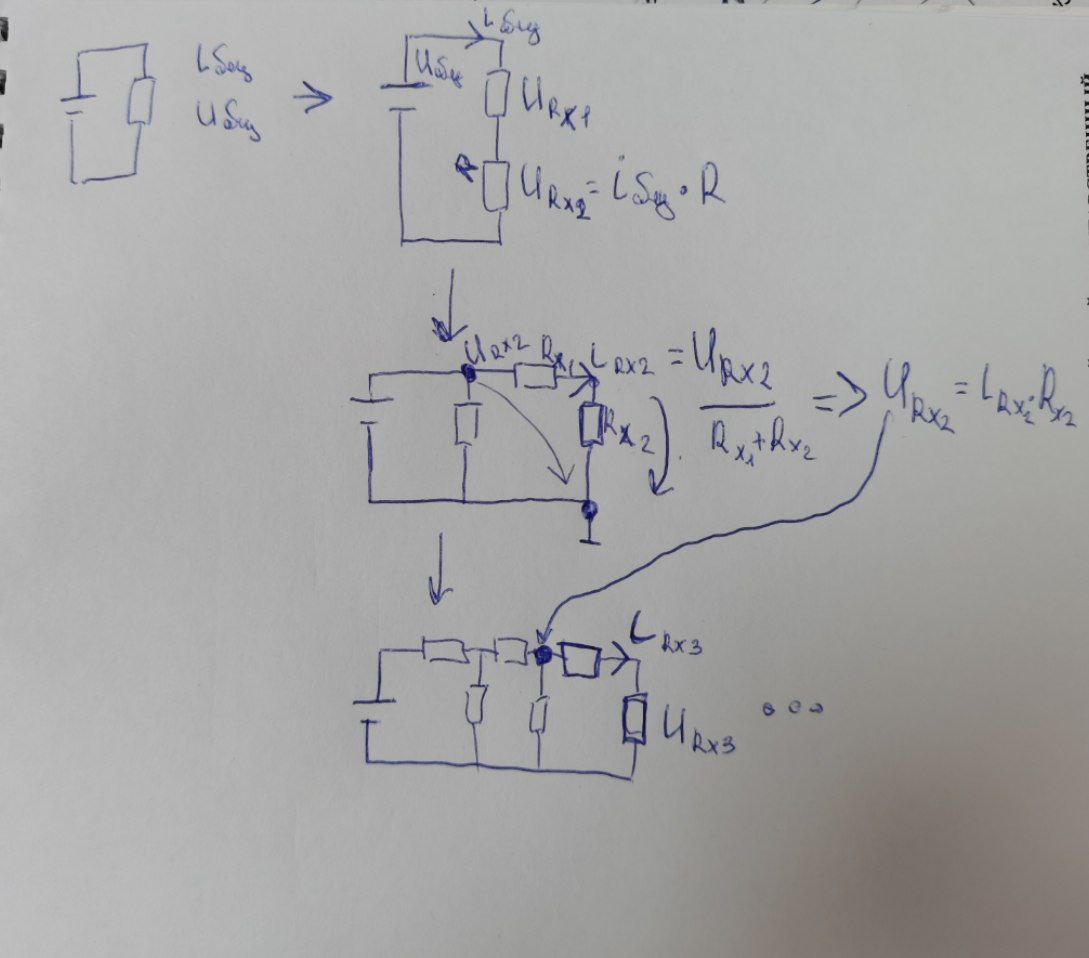 iбщ
iобщ
Uобщ
Uобщ
URx1
R
URx2 = iобщ · R
URx2 Rx1 iRx2 = URx2 / Rx1 + Rx2 => URx2 = iRx2 · Rx2
Rx2
iRx3
URx3 ...